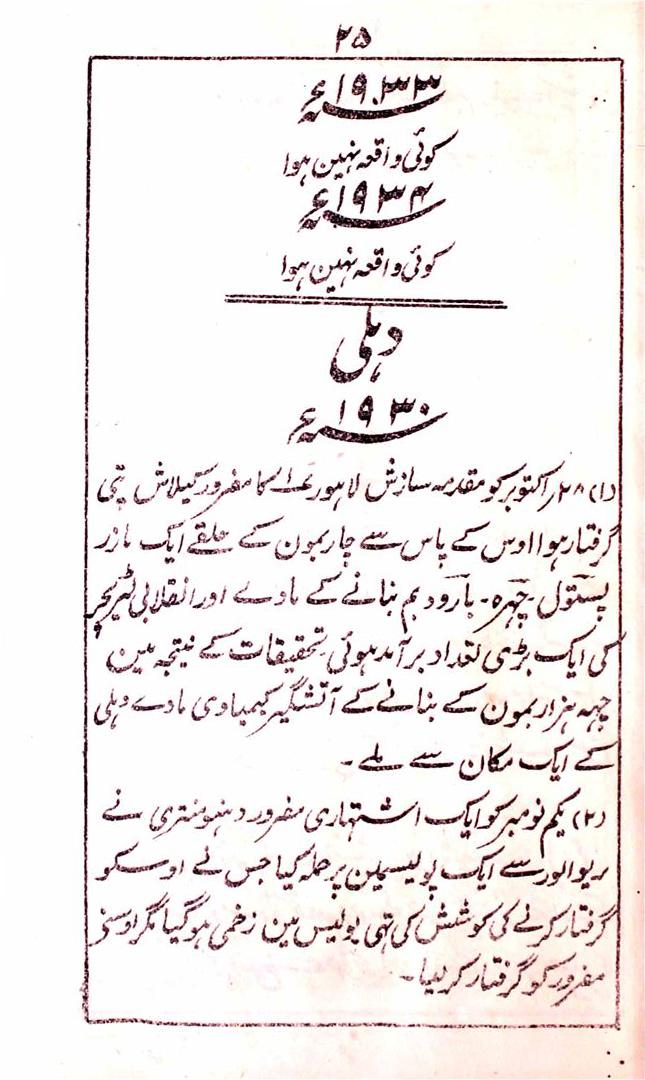 ۲۵
سنہ ۱۹۳۳ء
کوئی واقعہ نہین ہوا
سنہ ۱۹۳۴ء
کوئی واقعہ نہین ہوا
دہلی
سنہ ۱۹۳۰ء
(۱) ۲۸ر اکتوبر کو مقدمہ سازش لاہور کا مفرور کیلاش پتی
گرفتار ہوا اوس کے پاس سے چار بمون کے حلقے ایک مازر
پستول۔ چھرہ۔ بارود بم بنانے کے مادے اور انقلابی لٹریچر
کی ایک بڑی تعداد برآمد ہوئی تحقیقات کے نتیجہ مین
چہہ ہزار بمون کے بنانے کے آتشگیر کیمیاوی مادے دہلی
کے ایک مکان سے ملے۔
(۲) یکم نومبر کو ایک اشتہاری مفرور دہنونتری نے
ریوالور سے ایک پولیسمین پر حملہ کیا جس نے اوسکو
گرفتار کرنے کی کوشش کی تہی پولیس مین زخمی ہوگیا مگر اوسنے
مفرور کو گرفتار کر لیا۔